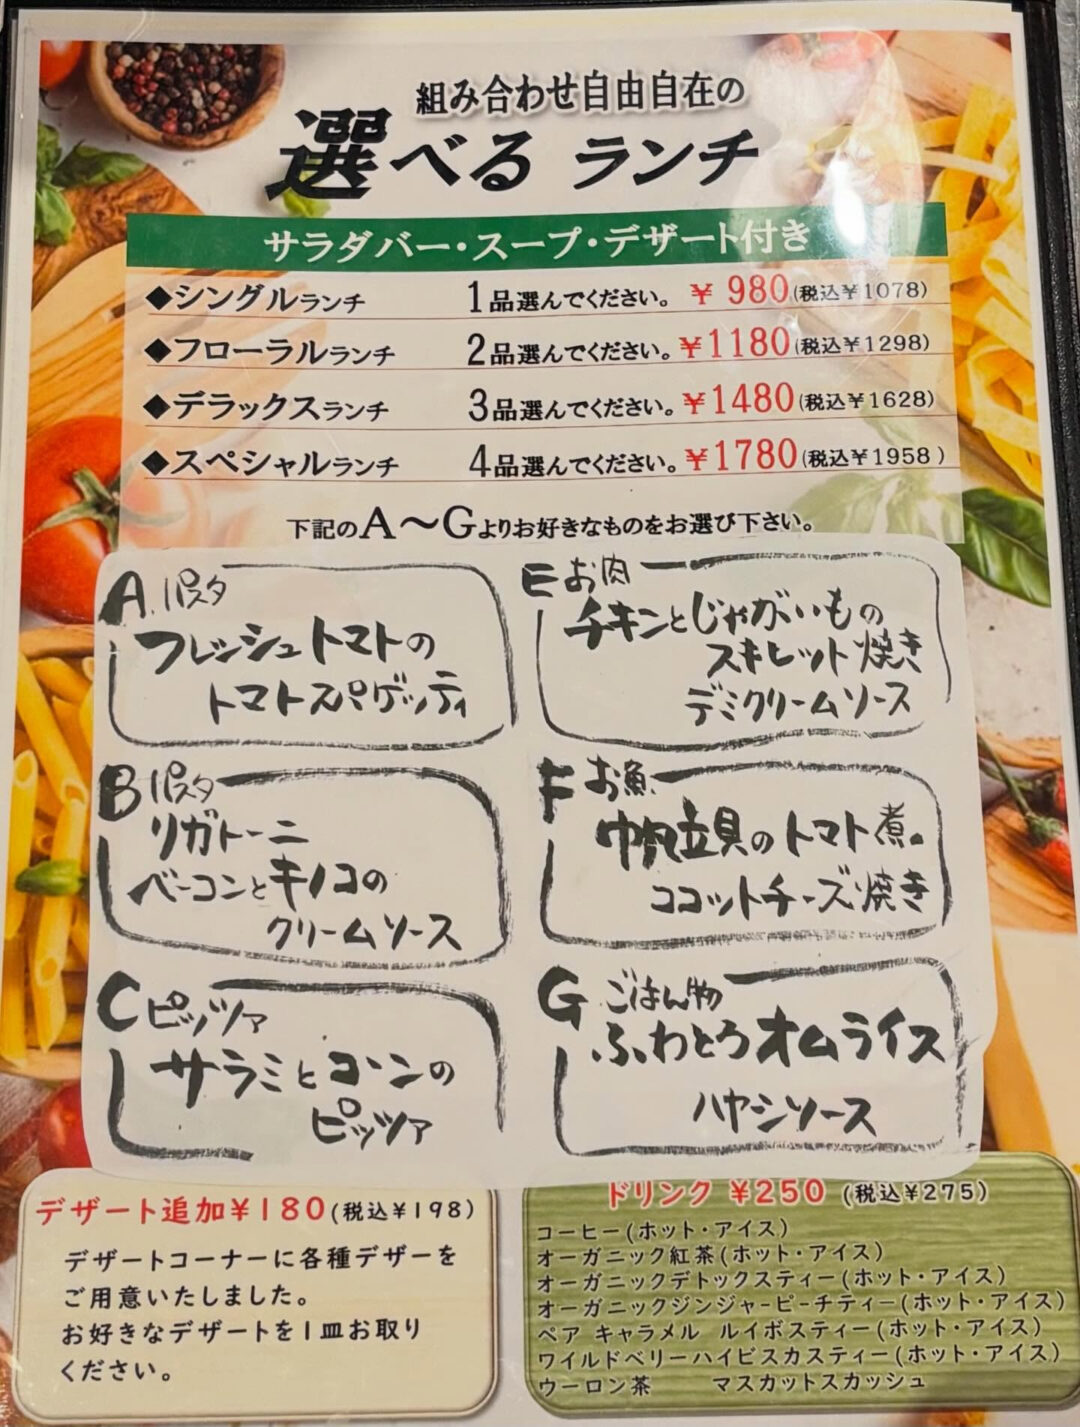 組み合わせ自由自在の
選べるランチ
サラダバー・スープ・デザート付き
◆シングルランチ 1品選んでください。 ¥980(税込¥1078)
◆フローラルランチ 2品選んでください。 ¥1180(税込¥1298)
◆デラックスランチ 3品選んでください。 ¥1480(税込¥1628)
◆スペシャルランチ 4品選んでください。 ¥1780(税込¥1958)
下記のA～Gよりお好きなものをお選び下さい。
A.パスタ
フレッシュトマトの
トマトスパゲッティ
B パスタ
リガトーニ
ベーコンとキノコの
クリームソース
C ピッツァ
サラミとコーンの
ピッツァ
E お肉
チキンとじゃがいもの
スキレット焼き
デミクリームソース
F お魚
帆立貝のトマト煮。
ココットチーズ焼き
G ごはん物
ふわとろオムライス
ハヤシソース
デザート追加¥180(税込¥198)
デザートコーナーに各種デザーを
ご用意いたしました。
お好きなデザートを1皿お取り
ください。
ドリンク ¥250 (税込¥275)
コーヒー(ホット・アイス)
オーガニック紅茶(ホット・アイス)
オーガニックデトックスティー(ホット・アイス)
オーガニックジンジャーピーチティー(ホット・アイス)
ペア キャラメル ルイボスティー(ホット・アイス)
ワイルドベリーハイビスカスティー(ホット・アイス)
ウーロン茶 マスカットスカッシュ